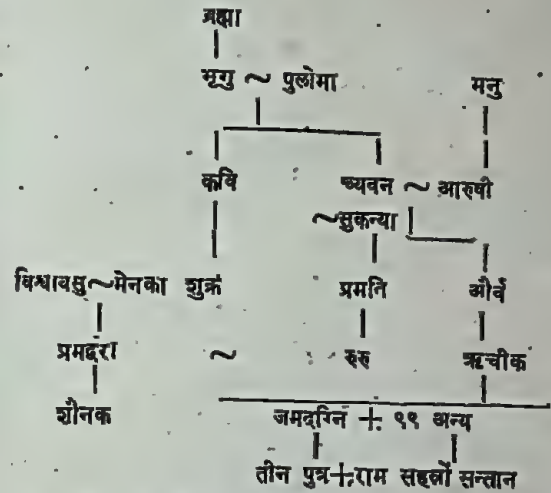 ब्रह्मा
भृगु ~ पुलोमा मनु
कवि च्यवन ~ आरुषी
~सुकन्या
विश्वावसु~मेनका शुक्र प्रमति और्व
प्रमद्वरा ~ रुरु ऋचीक
शौनक जमदग्नि + ९९ अन्य
तीन पुत्र+राम सहस्रों सन्तान